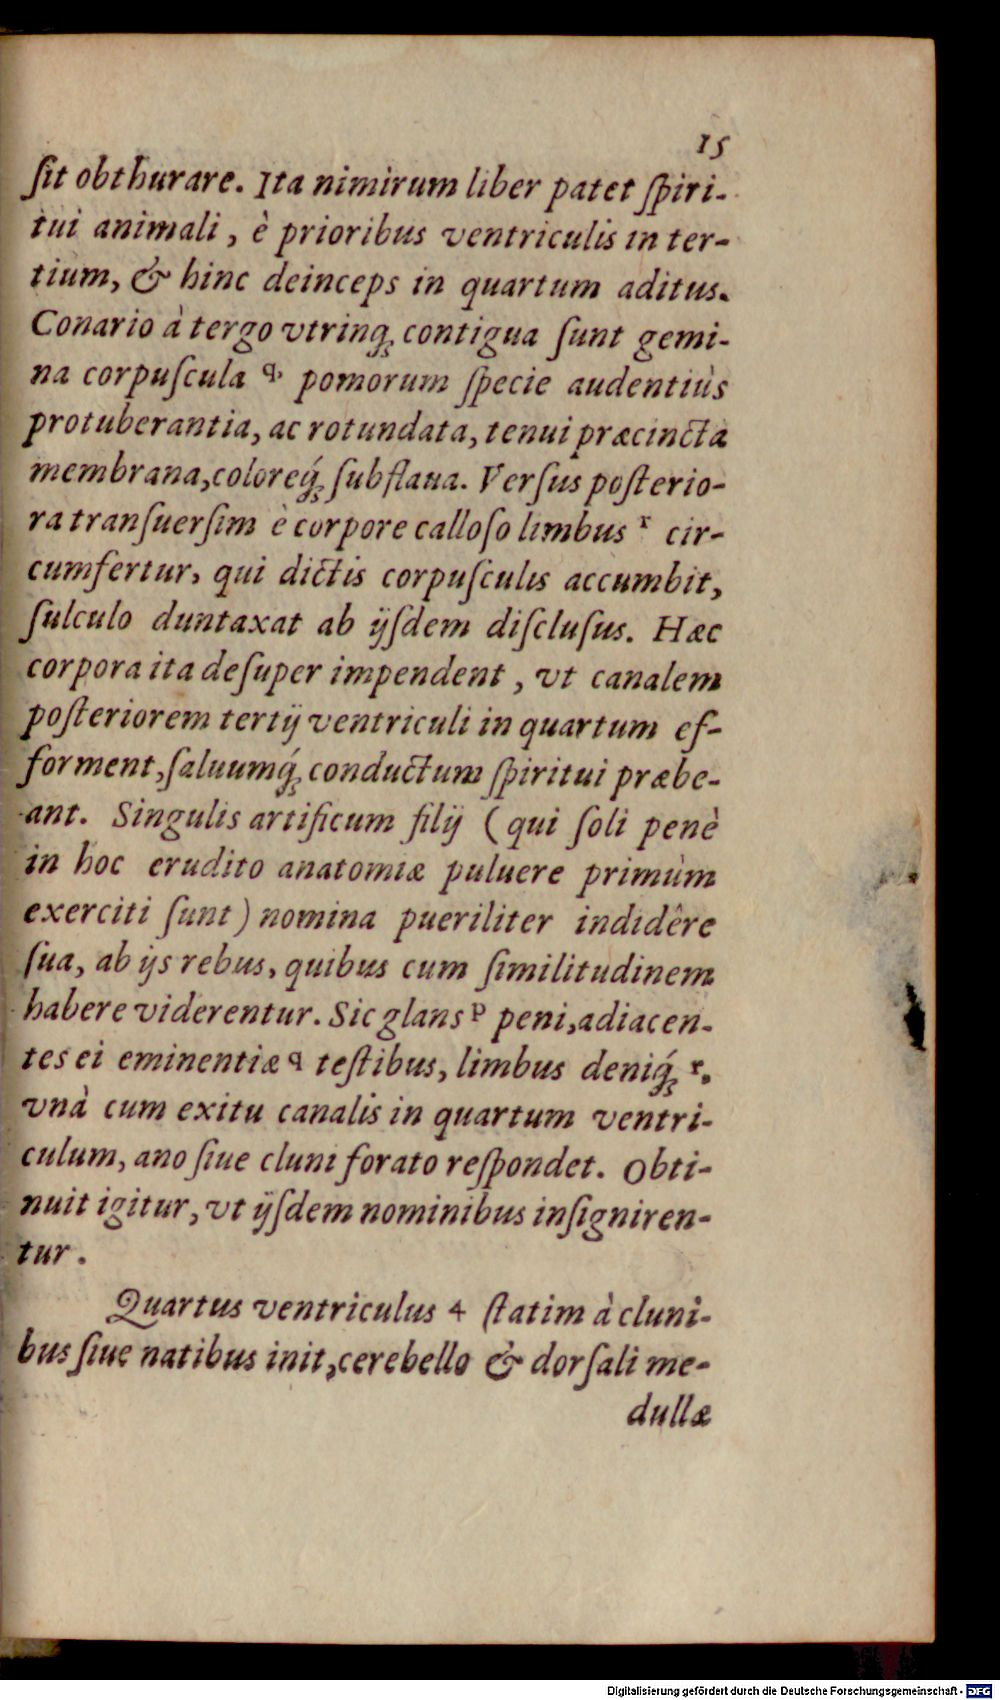 15
ſit obthurare. Ita nimirum liber patet ſpiri-
tui animali, è prioribus ventriculis in ter-
tium, & hinc deinceps in quartum aditus.
Conario à tergo vtrinq́; contigua ſunt gemi-
na corpuſcula q. pomorum ſpecie audentiùs
protuberantia, ac rotundata, tenui præcincta
membrana, coloreq́; ſubflaua. Verſus poſterio-
ra tranſuerſim è corpore calloſo limbus r cir-
cumfertur, qui dictis corpuſculis accumbit,
ſulculo duntaxat ab ijſdem diſcluſus. Hæc
corpora ita deſuper impendent, vt canalem
poſteriorem tertij ventriculi in quartum ef-
forment, ſaluumq́; conductum ſpiritui præbe-
ant. Singulis artificum filij (qui ſoli penè
in hoc erudito anatomiæ puluere primùm
exerciti ſunt) nomina pueriliter indidêre
ſua, ab ijs rebus, quibus cum ſimilitudinem
habere viderentur. Sic glans p peni, adiacen-
tes ei eminentiæ q teſtibus, limbus deniq́; r.
vnà cum exitu canalis in quartum ventri-
culum, ano ſiue cluni forato reſpondet. Obti-
nuit igitur, vt ijſdem nominibus inſigniren-
tur.
Quartus ventriculus 4 ſtatim à cluni-
bus ſiue natibus init, cerebello & dorſali me-
dullæ
Digitalisierung gefördert durch die Deutsche Forschungsgemeinschaft - DFG